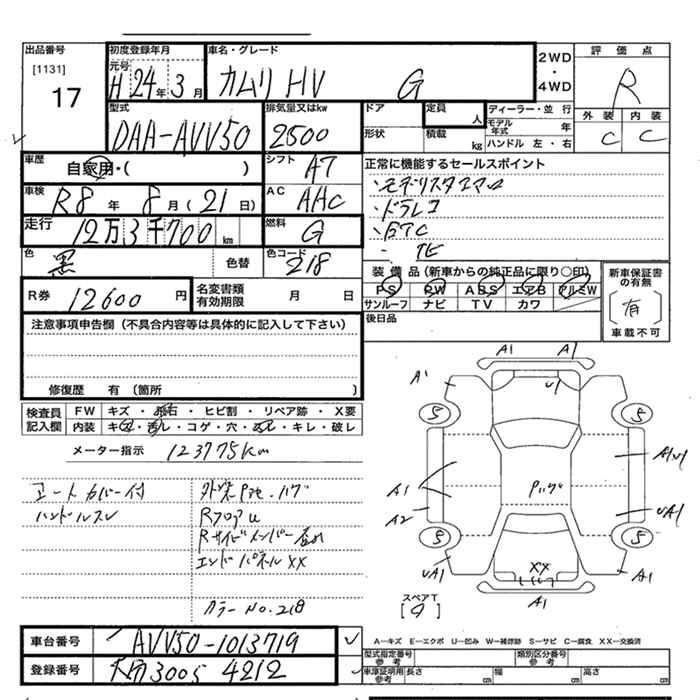 出品番号
[1131]
17
初度登録年月
元号
H 24年 3月
車名・グレード
カムリ HV G
2WD
・
4WD
評価点
R
外装 内装
C C
型式
DAA-AVV50
排気量又はkw
2500
ドア
形状
定員
人
積載
kg
ディーラー・並行
モデル年式 年
ハンドル 左・右
車歴
自家用・( )
シフト
A7
正常に機能するセールスポイント
車検
R8年 8月(21日)
AC
AAC
・ドラレコ
・ETC
走行
12万3千700km
燃料
G
色
黒
色替
色コード
218
装備品(新車からの純正品に限り〇印)
PS PW ABS エアB アルミW
サンルーフ ナビ TV カワ
新車保証書の有無
(有)
車載不可
R券
12600円
名変書類
有効期限 月 日
後日品
注意事項申告欄(不具合内容等は具体的に記入して下さい)
修復歴 有(箇所 )
検査員
記入欄
FW キズ・飛石・ヒビ割・リペア跡・X要
内装 キズ・汚レ・コゲ・穴・スレ・キレ・破レ
メーター指示 123775km
シートカバー付
ハンドルスレ
RフロアU
エンドパネルXX
カラーNo.218
A1 A1
A1
U1
5 5
A1
A2
A1U1
UA1
5 5
UA1
XX
A1
A1
スペアT
A－キズ E－エクボ U－凹み W－補修跡 S－サビ C－腐食 XX－交換済
車台番号
AVV50-1013719
登録番号
大分300 4212
型式指定番号
参考
類別区分番号
参考
車庫証明用
参考
長さ cm 幅 cm 高さ cm